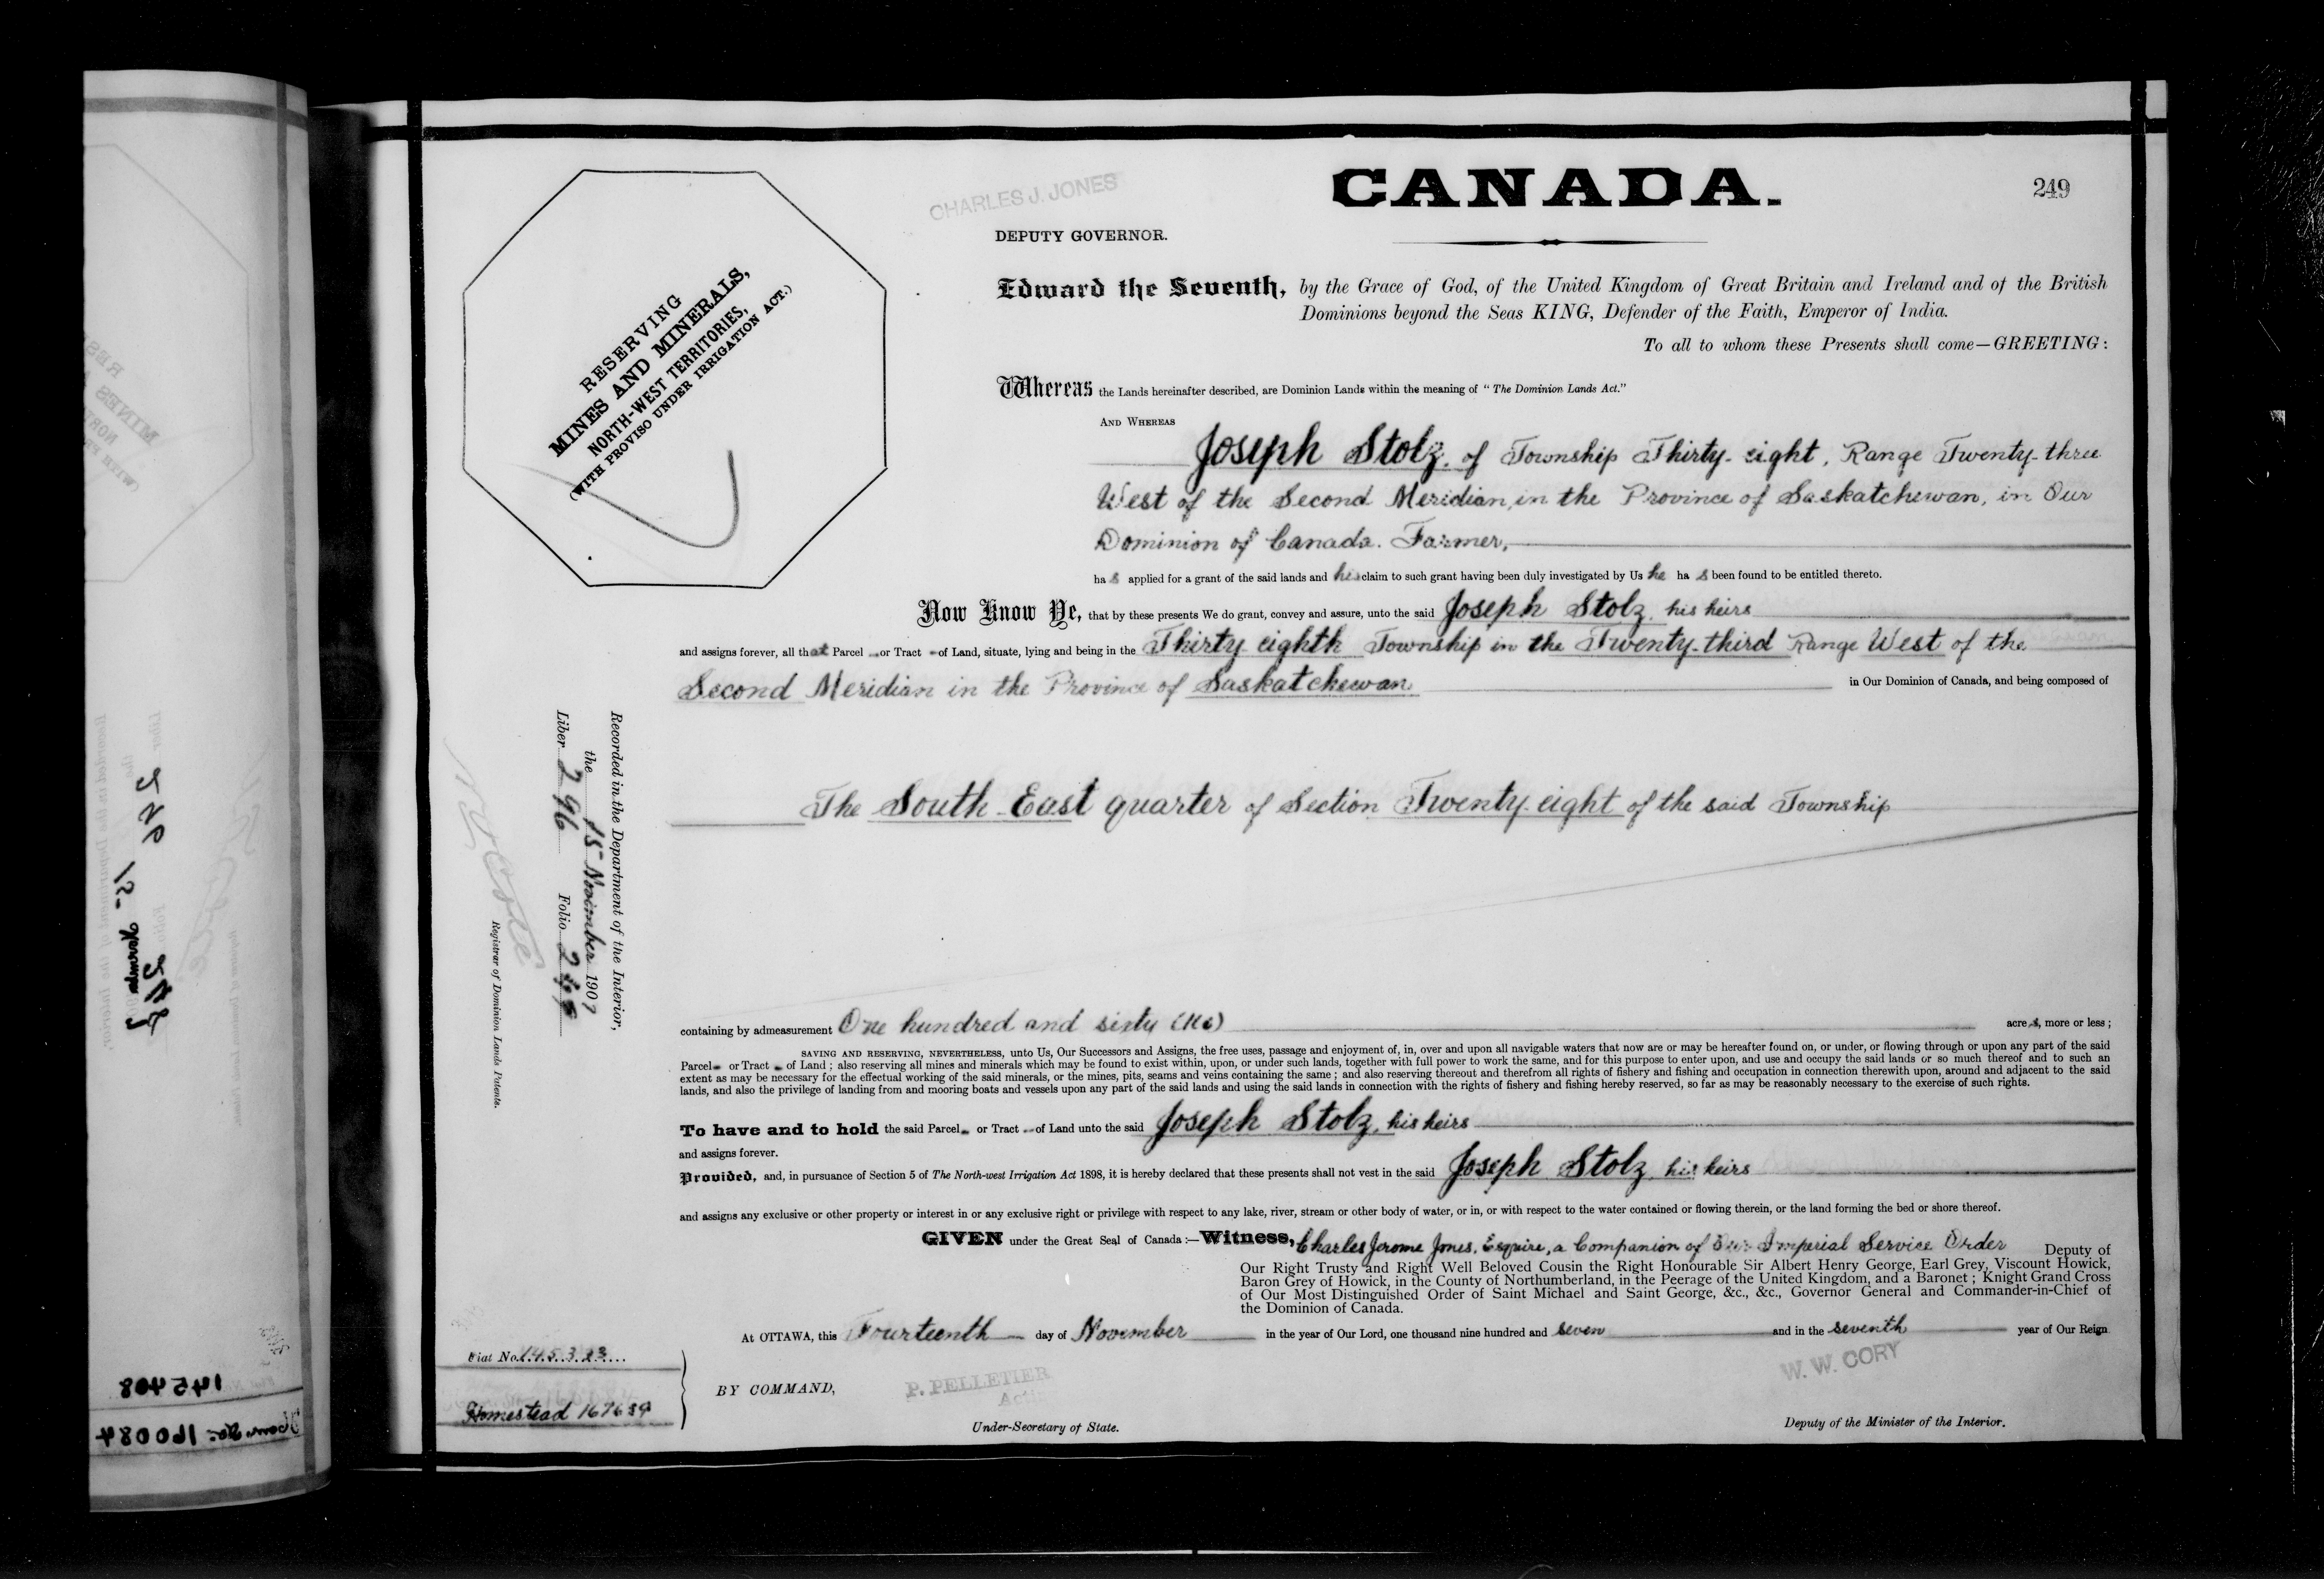 CHARLES J. JONES
DEPUTY GOVERNOR.
CANADA.
249
RESERVING
MINES AND MINERALS,
NORTH-WEST TERRITORIES,
(WITH PROVISO UNDER IRRIGATION ACT.)
Edward the Seventh, by the Grace of God, of the United Kingdom of Great Britain and Ireland and of the British
Dominions beyond the Seas KING, Defender of the Faith, Emperor of India.
To all to whom these Presents shall come—GREETING:
Whereas the Lands hereinafter described, are Dominion Lands within the meaning of "The Dominion Lands Act."
AND WHEREAS
Joseph Stolz, of Township Thirty-eight, Range Twenty-three
West of the Second Meridian, in the Province of Saskatchewan, in Our
Dominion of Canada. Farmer,
has applied for a grant of the said lands and his claim to such grant having been duly investigated by Us he has been found to be entitled thereto.
Now Know Ye, that by these presents We do grant, convey and assure, unto the said Joseph Stolz, his heirs
and assigns forever, all that Parcel or Tract of Land, situate, lying and being in the Thirty eighth Township in the Twenty-third Range West of the
Second Meridian in the Province of Saskatchewan in Our Dominion of Canada, and being composed of
The South East quarter of Section Twenty eight of the said Township
Recorded in the Department of the Interior,
the 15 November 1907
Liber 296 Folio 249
Registrar of Dominion Lands Patents.
containing by admeasurement One hundred and sixty (160) acres, more or less;
SAVING AND RESERVING, NEVERTHELESS, unto Us, Our Successors and Assigns, the free uses, passage and enjoyment of, in, over and upon all navigable waters that now are or may be hereafter found on, or under, or flowing through or upon any part of the said
Parcel or Tract of Land; also reserving all mines and minerals which may be found to exist within, upon, or under such lands, together with full power to work the same, and for this purpose to enter upon, and use and occupy the said lands or so much thereof and to such an
extent as may be necessary for the effectual working of the said minerals, or the mines, pits, seams and veins containing the same; and also reserving thereout and therefrom all rights of fishery and fishing and occupation in connection therewith upon, around and adjacent to the said
lands, and also the privilege of landing from and mooring boats and vessels upon any part of the said lands and using the said lands in connection with the rights of fishery and fishing hereby reserved, so far as may be reasonably necessary to the exercise of such rights.
To have and to hold the said Parcel or Tract of Land unto the said Joseph Stolz, his heirs
and assigns forever.
Provided, and, in pursuance of Section 5 of The North-west Irrigation Act 1898, it is hereby declared that these presents shall not vest in the said Joseph Stolz, his heirs
and assigns any exclusive or other property or interest in or any exclusive right or privilege with respect to any lake, river, stream or other body of water, or in, or with respect to the water contained or flowing therein, or the land forming the bed or shore thereof.
GIVEN under the Great Seal of Canada:—Witness, Charles Jerome Jones, Esquire, a Companion of Our Imperial Service Order Deputy of
Our Right Trusty and Right Well Beloved Cousin the Right Honourable Sir Albert Henry George, Earl Grey, Viscount Howick,
Baron Grey of Howick, in the County of Northumberland, in the Peerage of the United Kingdom, and a Baronet; Knight Grand Cross
of Our Most Distinguished Order of Saint Michael and Saint George, &c., &c., Governor General and Commander-in-Chief of
the Dominion of Canada.
At OTTAWA, this Fourteenth day of November in the year of Our Lord, one thousand nine hundred and seven and in the seventh year of Our Reign
Fiat No. 145323
Homestead 167639
BY COMMAND,
P. PELLETIER
Acting
Under-Secretary of State.
W. W. CORY
Deputy of the Minister of the Interior.